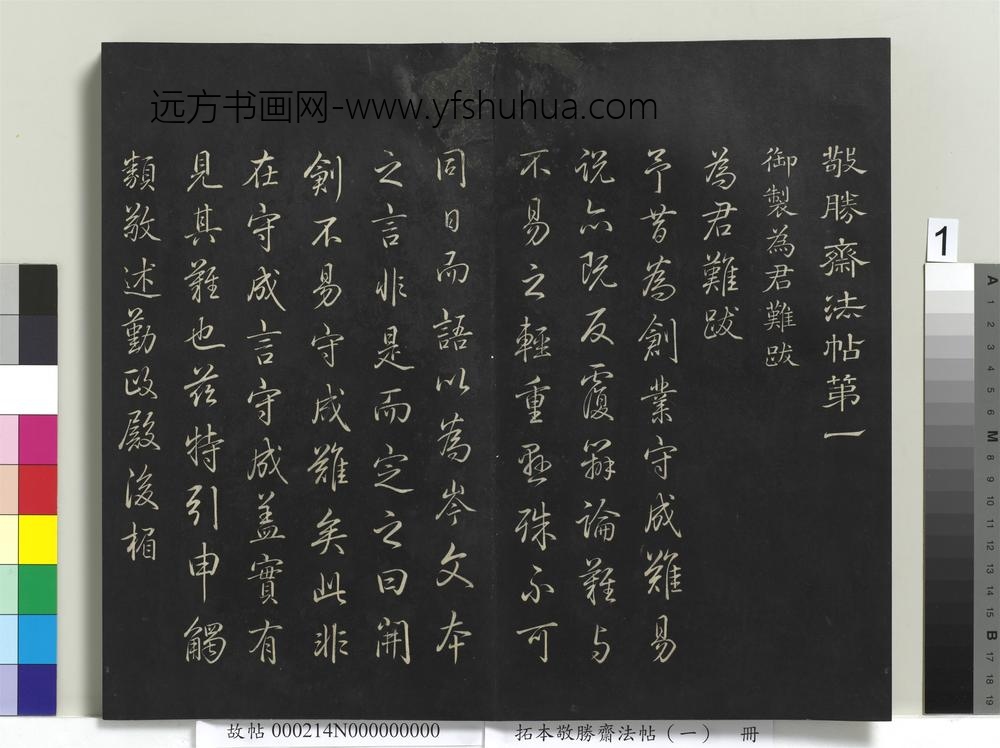 远方书画网-www.yfshuhua.com
敬勝齋法帖第一
御製為君難跋
為君難跋
予昔為創業守成難易
说亦既反覆辯論難与
不易之輕重懸殊不可
同日而語以為岑文本
之言非是而定之曰開
創不易守成難矣此非
在守成言守成盖實有
見其難也茲特引申觸
類敬述勤政殿後楣
1
A 1 2 3 4 5 6 M 8 9 10 11 12 13 14 15 B 17 18 19
故帖 000214N000000000
拓本敬勝齋法帖（一） 冊